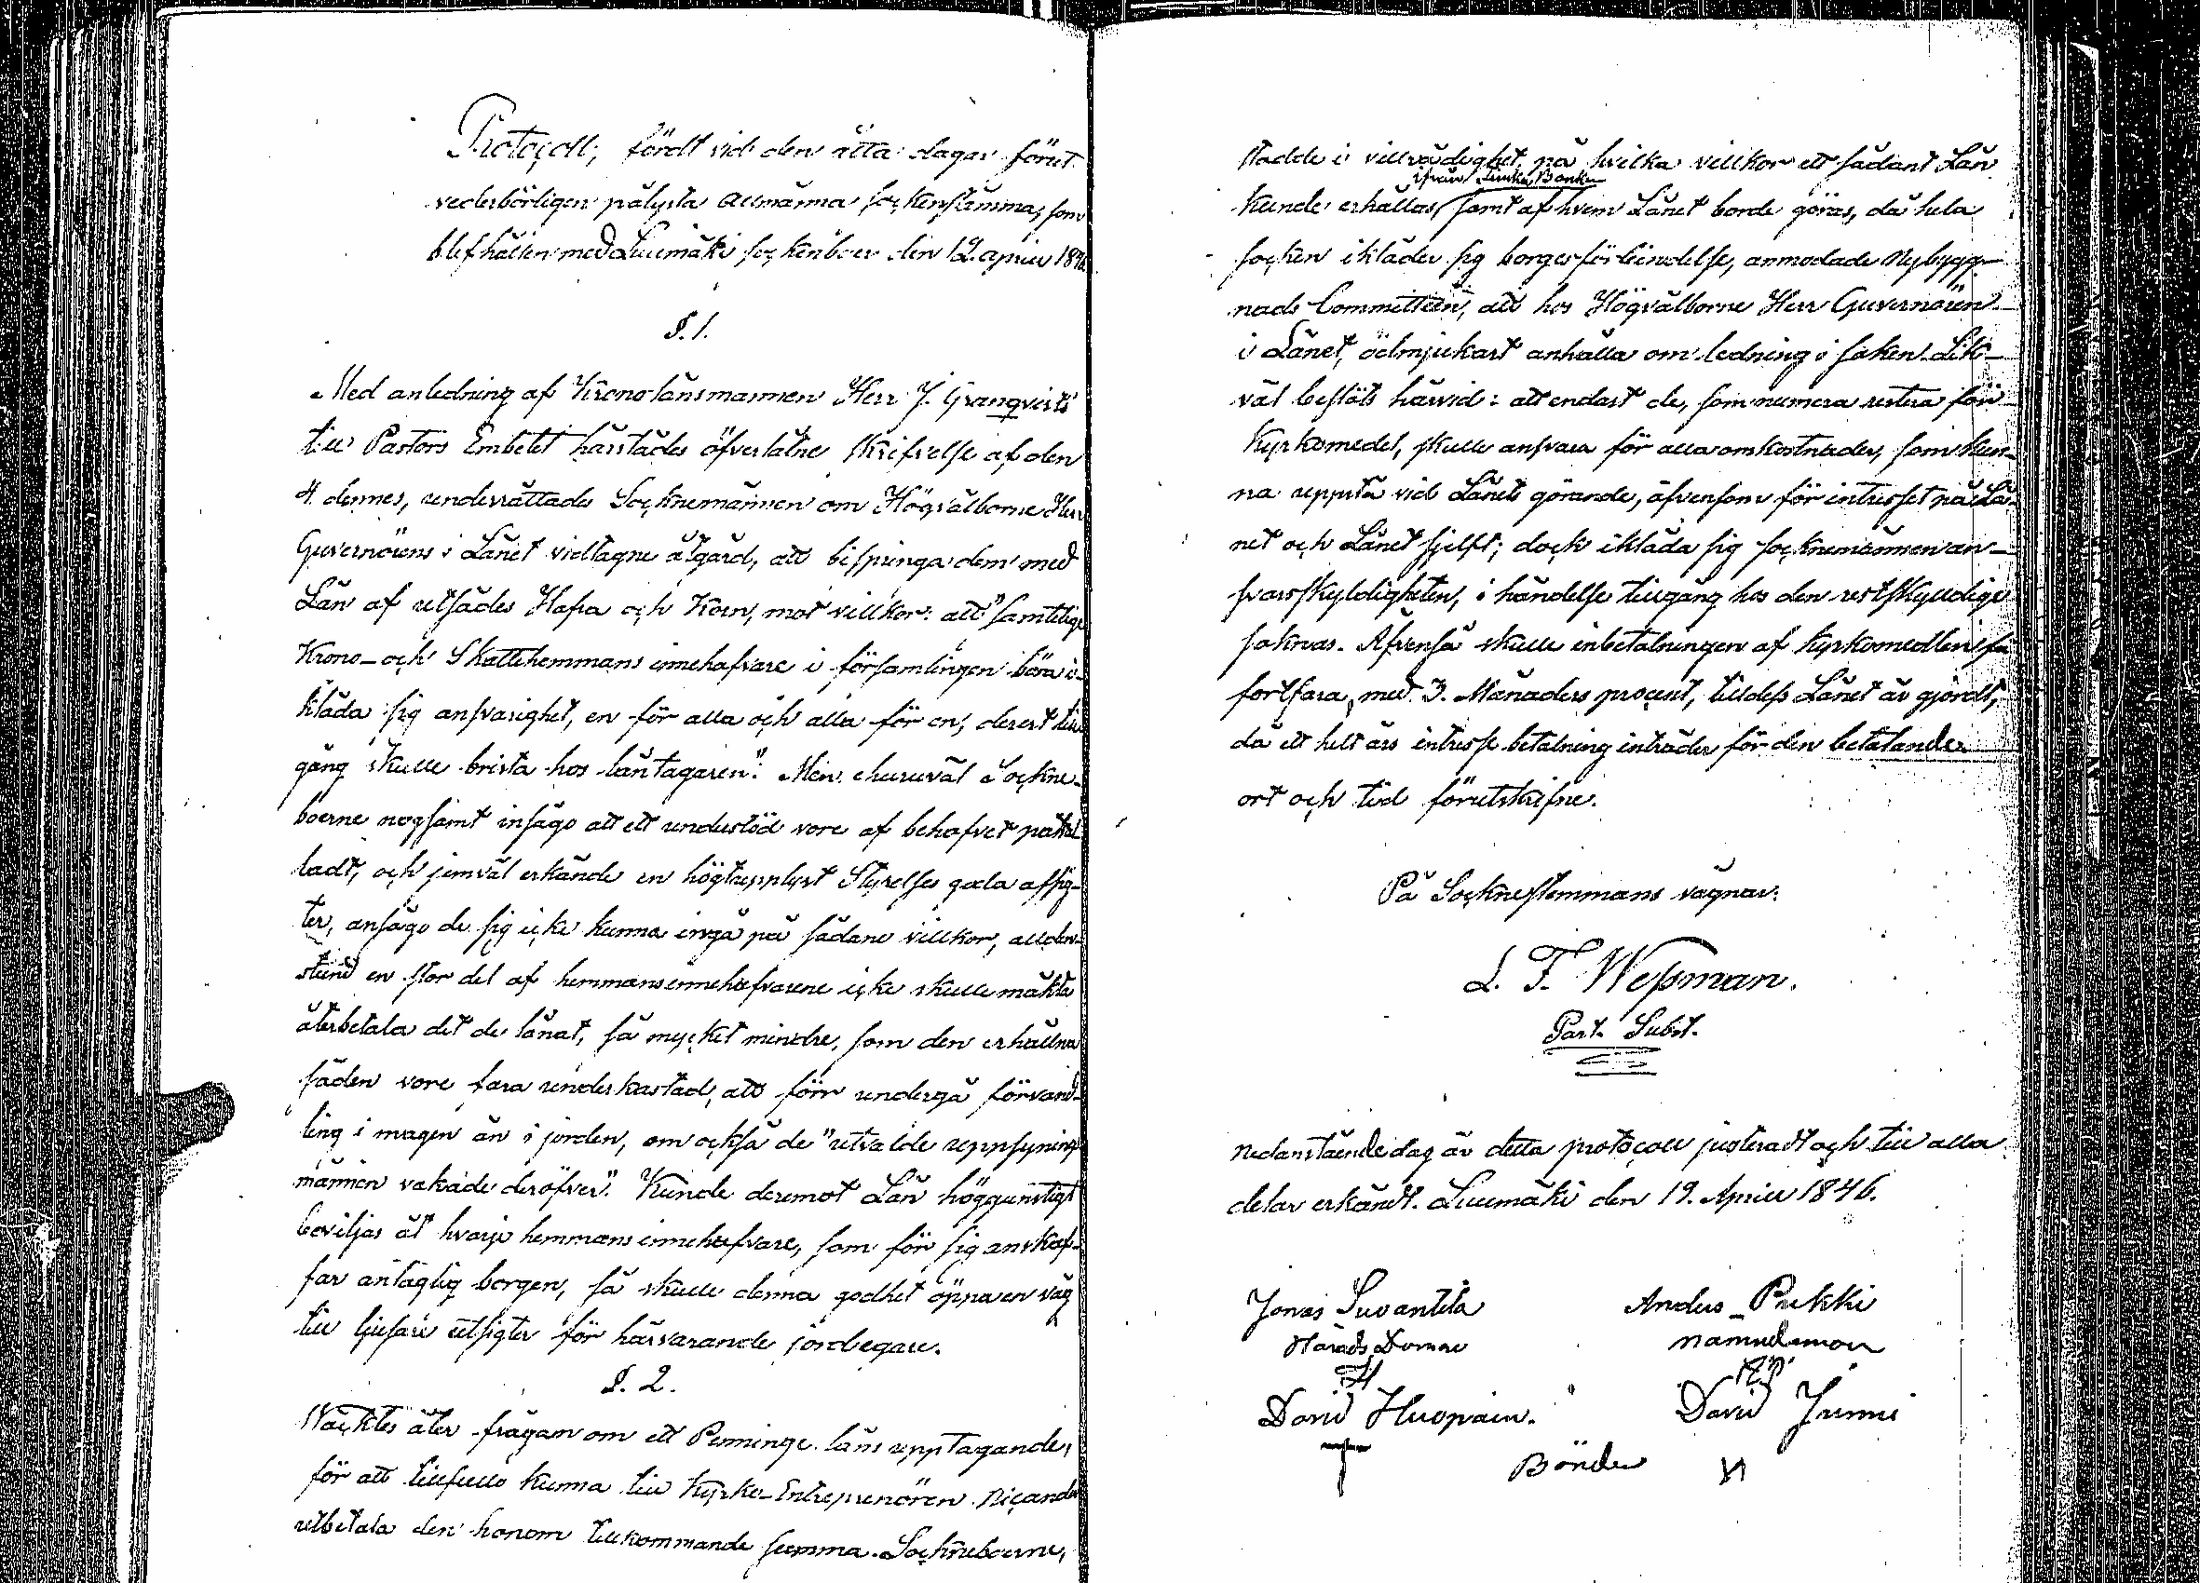 Protocoll, fördt vid den åtta dagar förut
vederbörligen pålysta allmänna sockenstämma, som
blef hållen med Luumäki sockenboer den 12 april 1846
§. 1.
Med anledning af Kronolänsmannen Herr J. Granqvists
till Pastors Embetet härstädes öfverlåtne skrifvelse af den
4 dennes, underrättades Socknemännen om Högvälborne Herr
Guvernörens i Länet vidtagne åtgärd, att bispringa dem med
Lån af utsädes Hafra och Korn, mot villkor: att "samtelige
Krono- och Skattehemmans innehafvare i församlingen böra i-
kläda sig ansvarighet, en för alla och alla för en, derest till-
gång skulle brista hos låntagaren." Men ehuruväl Sockne-
boerne nogsamt insågo att ett understöd vore af behofvet påkal-
ladt, och jemväl erkände en högtupplyst Styrelses goda afsig-
ter, ansågo de sig icke kunna ingå på sådane villkor, allden-
stund en stor del af hemmansinnehafvarene icke skulle mäkta
återbetala det de lånat, så mycket mindre, som den erhållna
säden vore fara underkastad, att förr undergå förvand-
ling i magen än i jorden, om också de "utvalde uppsynings-
männen vakade deröfver." Kunde deremot Lån höggunstigt
beviljas åt hvarje hemmansinnehafvare, som för sig anskaf-
far antaglig borgen, så skulle denna godhet öppna en väg
till ljusare utsigter för härvarande jordegare.
§. 2.
Väcktes åter frågan om ett Penninge låns upptagande,
för att tillfullo kunna till Kyrko-Entreprenören Nicander
utbetala den honom tillkommande summa. Sockneboerne,
stadde i villrådighet, på hvilka villkor ett sådant Lån
ifrån Finska Banken
kunde erhållas, samt af hvem Lånet borde göras, då hela
socken ikläder sig borgesförbindelse, anmodade Nybygg-
nads Committéen, att hos Högvälborne Herr Guvernören
i Länet, ödmjukast anhålla om ledning i saken. Lik-
väl beslöts härvid: att endast de, som numera restera för
Kyrkomedel, skulle ansvara för alla omkostnader, som kun-
na uppstå vid Lånets görande, äfvensom för intresset på Lå-
net och Lånet sjelft; dock ikläda sig socknemännen an-
svarsskyldigheten, i händelse tillgång hos den restskyldige
saknas. Äfvenså skulle inbetalningen af Kyrkomedlen få
fortfara, med 3. Månaders procent, tilldess Lånet är gjordt,
då ett helt års intresse betalning inträder för den betalande
ort och tid förutskrifne.
På Socknestemmans vägnar:
L. F. Wessman.
Past. Subst.
Nedanståendedag är detta protocoll justeradt och till alla
delar erkändt. Luumäki den 19. April 1846.
Jonas Suvantila Anders Pukki
Härads Domare Nämndeman
David Huopain. David Junni
Bönder